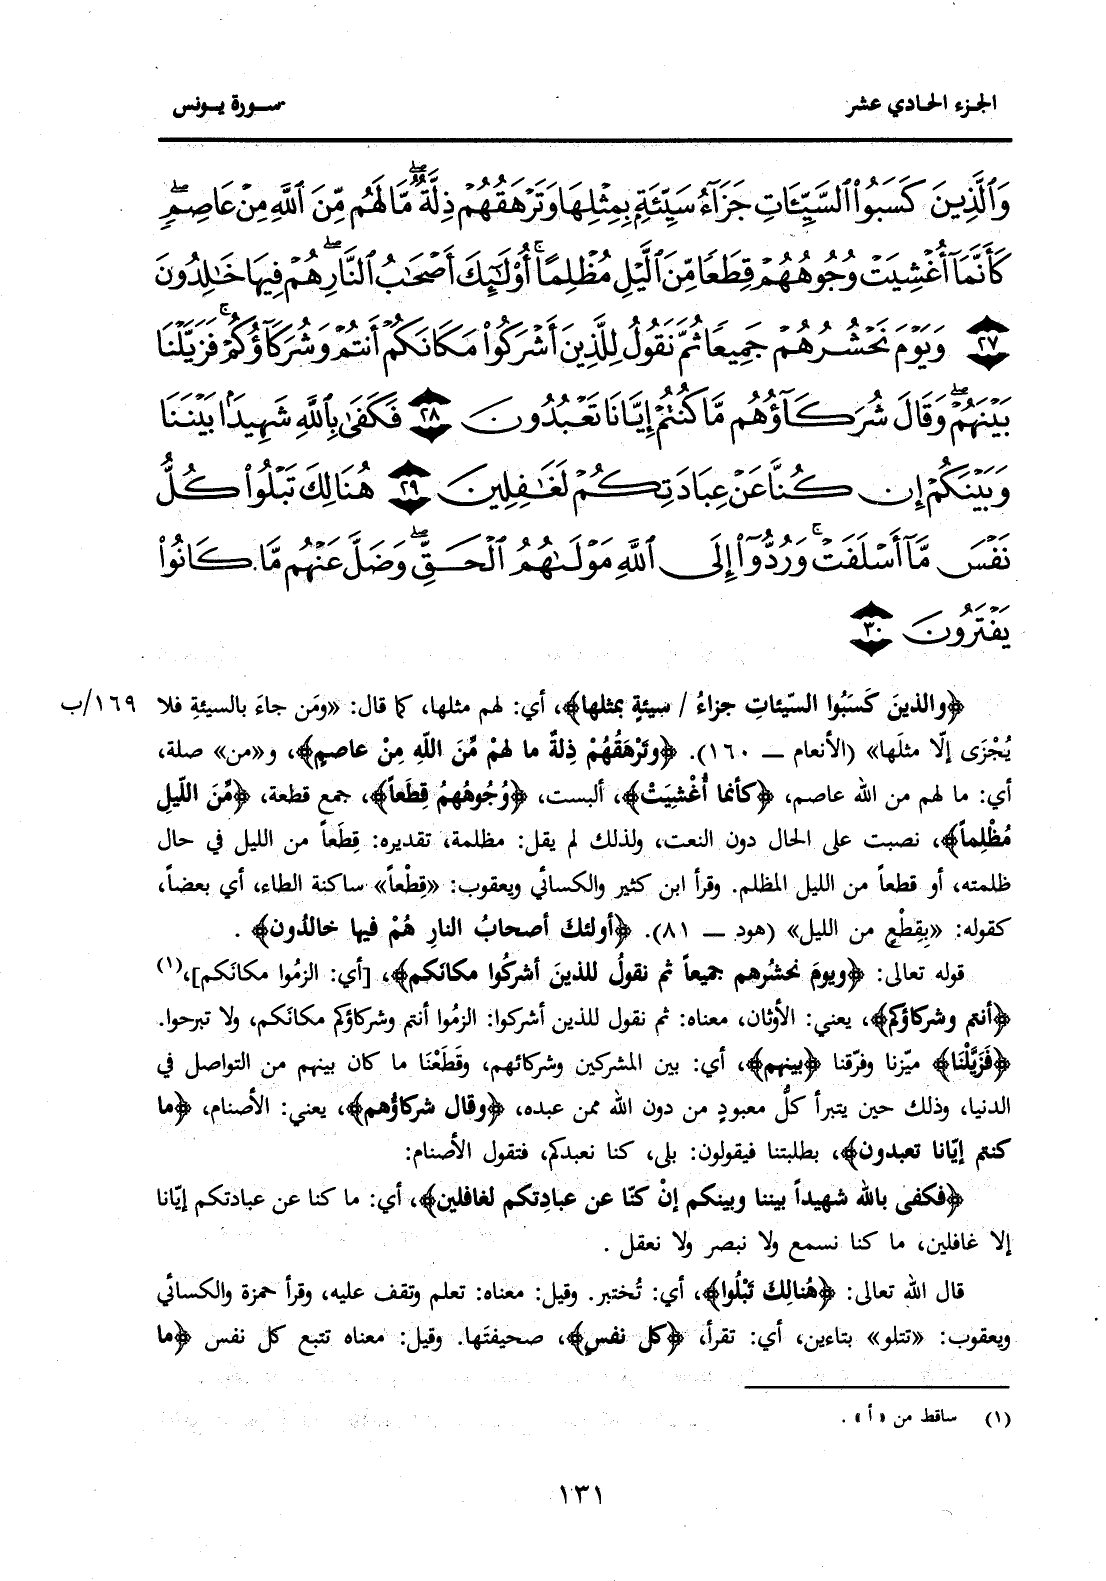 الجزء الحادي عشر
سورة يونس
وَٱلَّذِينَ كَسَبُوا۟ ٱلسَّيِّـَٔاتِ جَزَآءُ سَيِّئَةٍۭ بِمِثْلِهَا وَتَرْهَقُهُمْ ذِلَّةٌ ۖ مَّا لَهُم مِّنَ ٱللَّهِ مِنْ عَاصِمٍ ۖ
كَأَنَّمَآ أُغْشِيَتْ وُجُوهُهُمْ قِطَعًا مِّنَ ٱلَّيْلِ مُظْلِمًا ۚ أُو۟لَٰٓئِكَ أَصْحَٰبُ ٱلنَّارِ ۖ هُمْ فِيهَا خَٰلِدُونَ
٢٧ وَيَوْمَ نَحْشُرُهُمْ جَمِيعًا ثُمَّ نَقُولُ لِلَّذِينَ أَشْرَكُوا۟ مَكَانَكُمْ أَنتُمْ وَشُرَكَآؤُكُمْ ۚ فَزَيَّلْنَا
بَيْنَهُمْ ۖ وَقَالَ شُرَكَآؤُهُم مَّا كُنتُمْ إِيَّانَا تَعْبُدُونَ ٢٨ فَكَفَىٰ بِٱللَّهِ شَهِيدًۢا بَيْنَنَا
وَبَيْنَكُمْ إِن كُنَّا عَنْ عِبَادَتِكُمْ لَغَٰفِلِينَ ٢٩ هُنَالِكَ تَبْلُوا۟ كُلُّ
نَفْسٍ مَّآ أَسْلَفَتْ ۚ وَرُدُّوٓا۟ إِلَى ٱللَّهِ مَوْلَىٰهُمُ ٱلْحَقِّ ۖ وَضَلَّ عَنْهُم مَّا كَانُوا۟
يَفْتَرُونَ ٣٠
﴿والذينَ كَسَبُوا السّيئاتِ جزاءُ / سيئةٍ بمثلها﴾، أي: لهم مثلها، كما قال: «ومَن جاءَ بالسيئةِ فلا ١٦٩/ب
يُجْزَى إلّا مثلَها» (الأنعام ــ ١٦٠). ﴿وتَرْهَقُهُمْ ذِلةٌ ما لهمْ مِّنَ اللّهِ مِنْ عاصمٍ﴾، و«من» صلة،
أي: ما لهم من الله عاصم، ﴿كأنما أُغْشِيَتْ﴾، ألبست، ﴿وُجُوهُهمُ قِطَعاً﴾، جمع قطعة، ﴿مِّنَ اللّيلِ
مُظْلِماً﴾، نصبت على الحال دون النعت، ولذلك لم يقل: مظلمة، تقديره: قِطَعاً من الليل في حال
ظلمته، أو قطعاً من الليل المظلم. وقرأ ابن كثير والكسائي ويعقوب: «قِطْعاً» ساكنة الطاء، أي بعضاً،
كقوله: «بِقِطْعٍ من الليل» (هود ــ ٨١). ﴿أولئكَ أصحابُ النارِ هُمْ فيها خالدُون﴾ .
قوله تعالى: ﴿ويومَ نحشُرهم جميعاً ثم نقولُ للذينَ أشركُوا مكانَكم﴾، [أي: الزمُوا مكانَكم]،(١)
﴿أنتم وشركاؤكم﴾، يعني: الأوثان، معناه: ثم نقول للذين أشركوا: الزمُوا أنتم وشركاؤكم مكانَكم، ولا تبرحوا.
﴿فَزَيَّلْنَا﴾ ميّزنا وفرّقنا ﴿بينهم﴾، أي: بين المشركين وشركائهم، وقَطَعْنَا ما كان بينهم من التواصل في
الدنيا، وذلك حين يتبرأ كلُّ معبودٍ من دون الله ممن عبده، ﴿وقال شركاؤهم﴾، يعني: الأصنام، ﴿ما
كنتم إيّانا تعبدون﴾، بطلبتنا فيقولون: بلى، كنا نعبدكم، فتقول الأصنام:
﴿فكفى بالله شهيداً بيننا وبينكم إنْ كنّا عن عبادِتكم لغافلين﴾، أي: ما كنا عن عبادتكم إيّانا
إلا غافلين، ما كنا نسمع ولا نبصر ولا نعقل .
قال الله تعالى: ﴿هُنالِكَ تَبْلُوا﴾، أي: تُختبر. وقيل: معناه: تعلم وتقف عليه، وقرأ حمزة والكسائي
ويعقوب: «تتلو» بتاءين، أي: تقرأ، ﴿كل نفسٍ﴾، صحيفتَها. وقيل: معناه تتبع كل نفس ﴿ما
(١) ساقط من «أ» .
١٣١